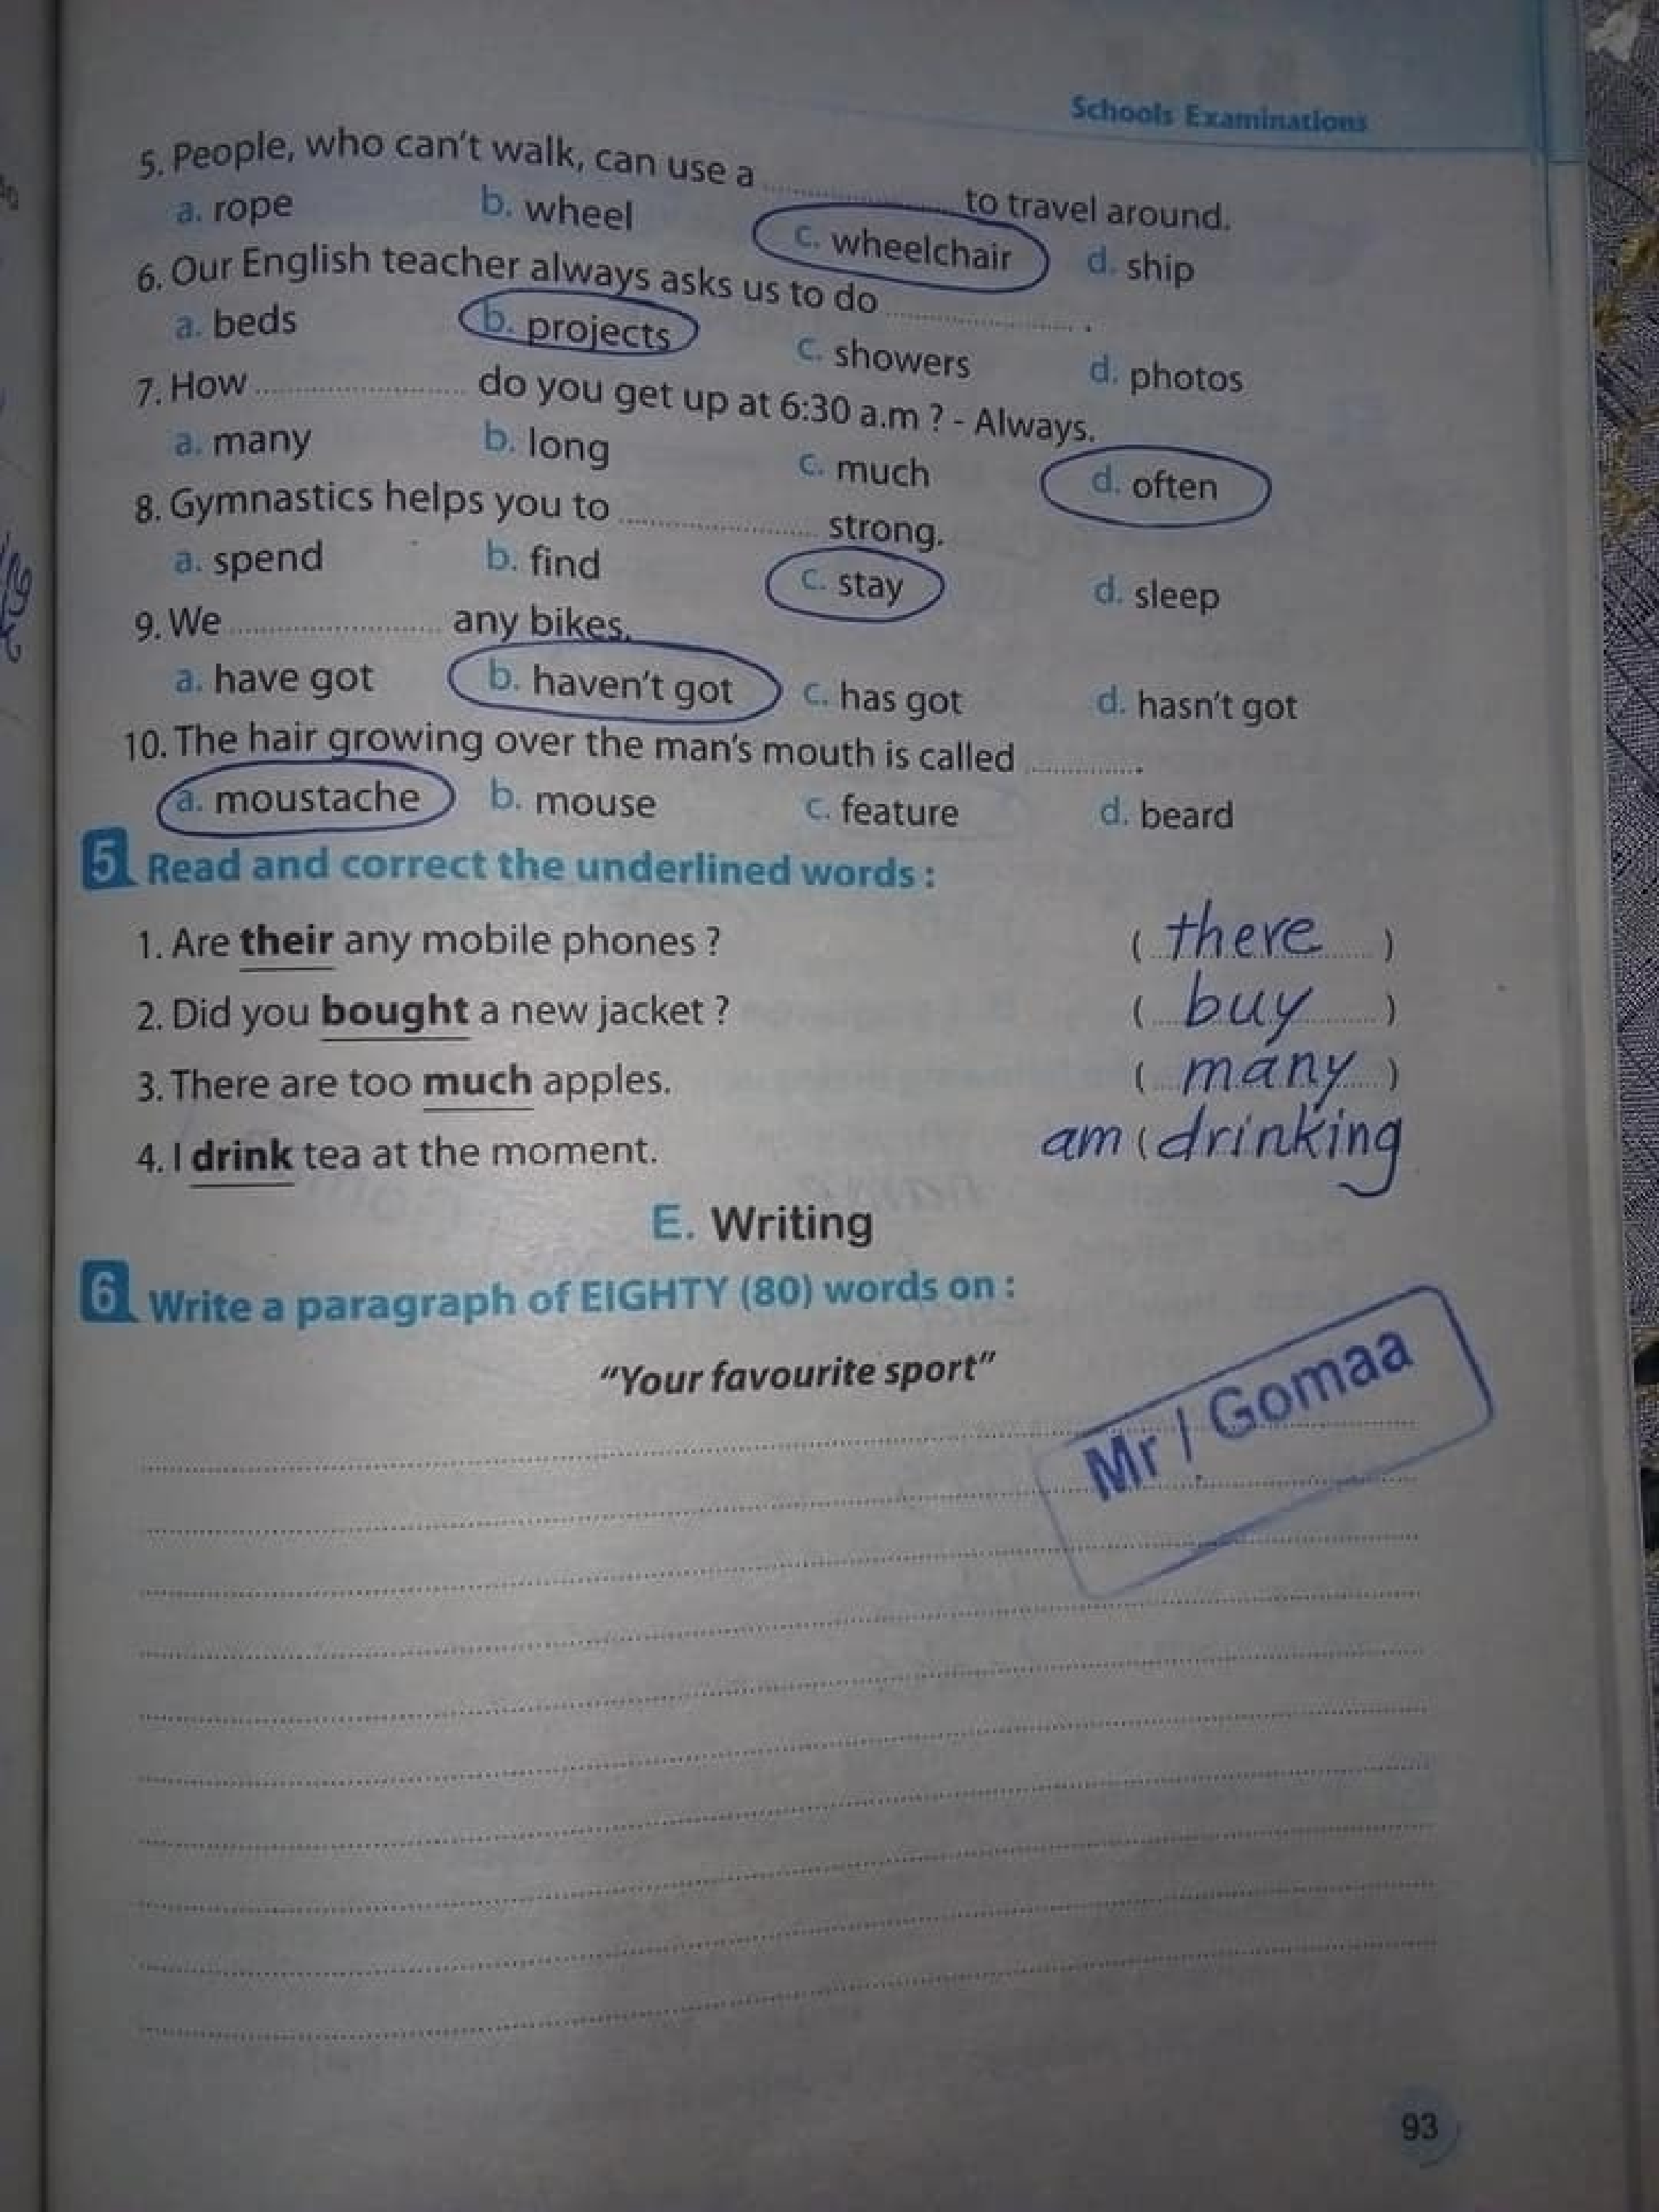 Schools Examinations
5. People, who can't walk, can use a .................... to travel around.
a. rope b. wheel c. wheelchair d. ship
6. Our English teacher always asks us to do .................... .
a. beds b. projects c. showers d. photos
7. How .................... do you get up at 6:30 a.m ? - Always.
a. many b. long c. much d. often
8. Gymnastics helps you to .................... strong.
a. spend b. find c. stay d. sleep
9. We .................... any bikes.
a. have got b. haven't got c. has got d. hasn't got
10. The hair growing over the man's mouth is called ............. .
a. moustache b. mouse c. feature d. beard
5 Read and correct the underlined words :
1. Are their any mobile phones ? ( there )
2. Did you bought a new jacket ? ( buy )
3. There are too much apples. ( many )
4. I drink tea at the moment. am ( drinking
E. Writing
6 Write a paragraph of EIGHTY (80) words on :
"Your favourite sport"
Mr / Gomaa
93